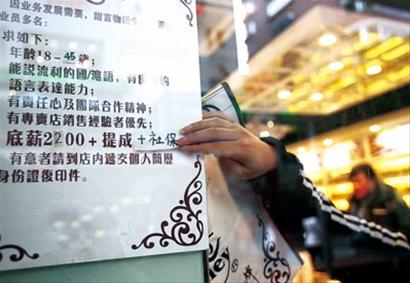 因业务发展需要,
业员多名:
求如下:
年齡18-45歲;
能説流利的國/滬語,有
語言表達能力;
有責任心及團隊合作精神;
有專賣店銷售經驗者優先;
底薪2200+提成+社保
有意者請到店内遞交個人簡歷
身份證復印件。